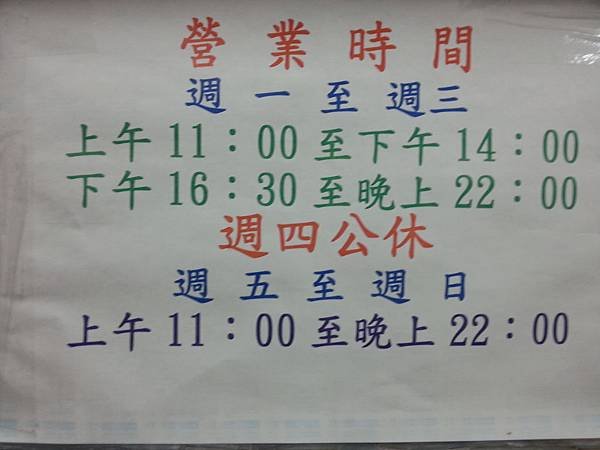 營業時間
週一至週三
上午11：00至下午14：00
下午16：30至晚上22：00
週四公休
週五至週日
上午11：00至晚上22：00